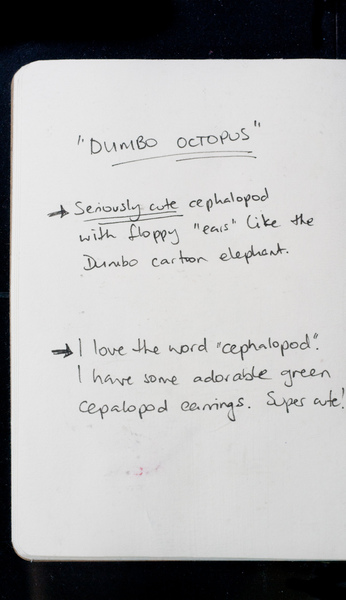 "DUMBO OCTOPUS"
→ Seriously cute cephalopod
with floppy "ears" like the
Dumbo cartoon elephant.
→ I love the word "cephalopod".
I have some adorable green
cepalopod earrings. Super cute!